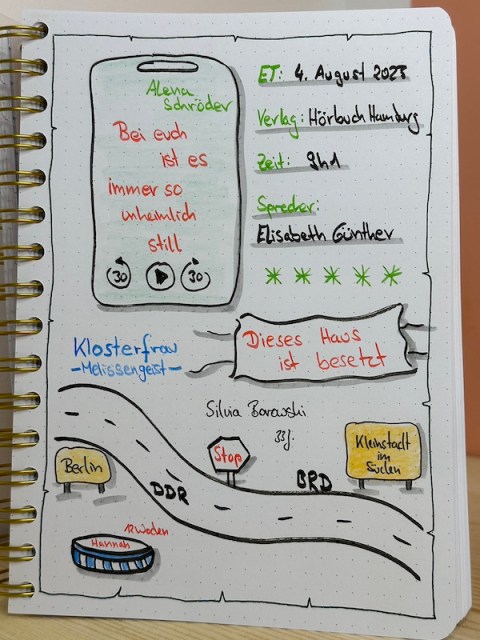 Alena
Schröder
Bei euch
ist es
immer so
unheimlich
still
30
30
ET: 4. August 2023
Verlag: Hörbuch Hamburg
Zeit: 9h1
Sprecher:
Elisabeth Günther
Klosterfrau
-Melissengeist-
Dieses Haus
ist besetzt
Silvia Borowski
33J.
Stop
Kleinstadt
im
Süden
Berlin
DDR
BRD
12 Wochen
Hannah